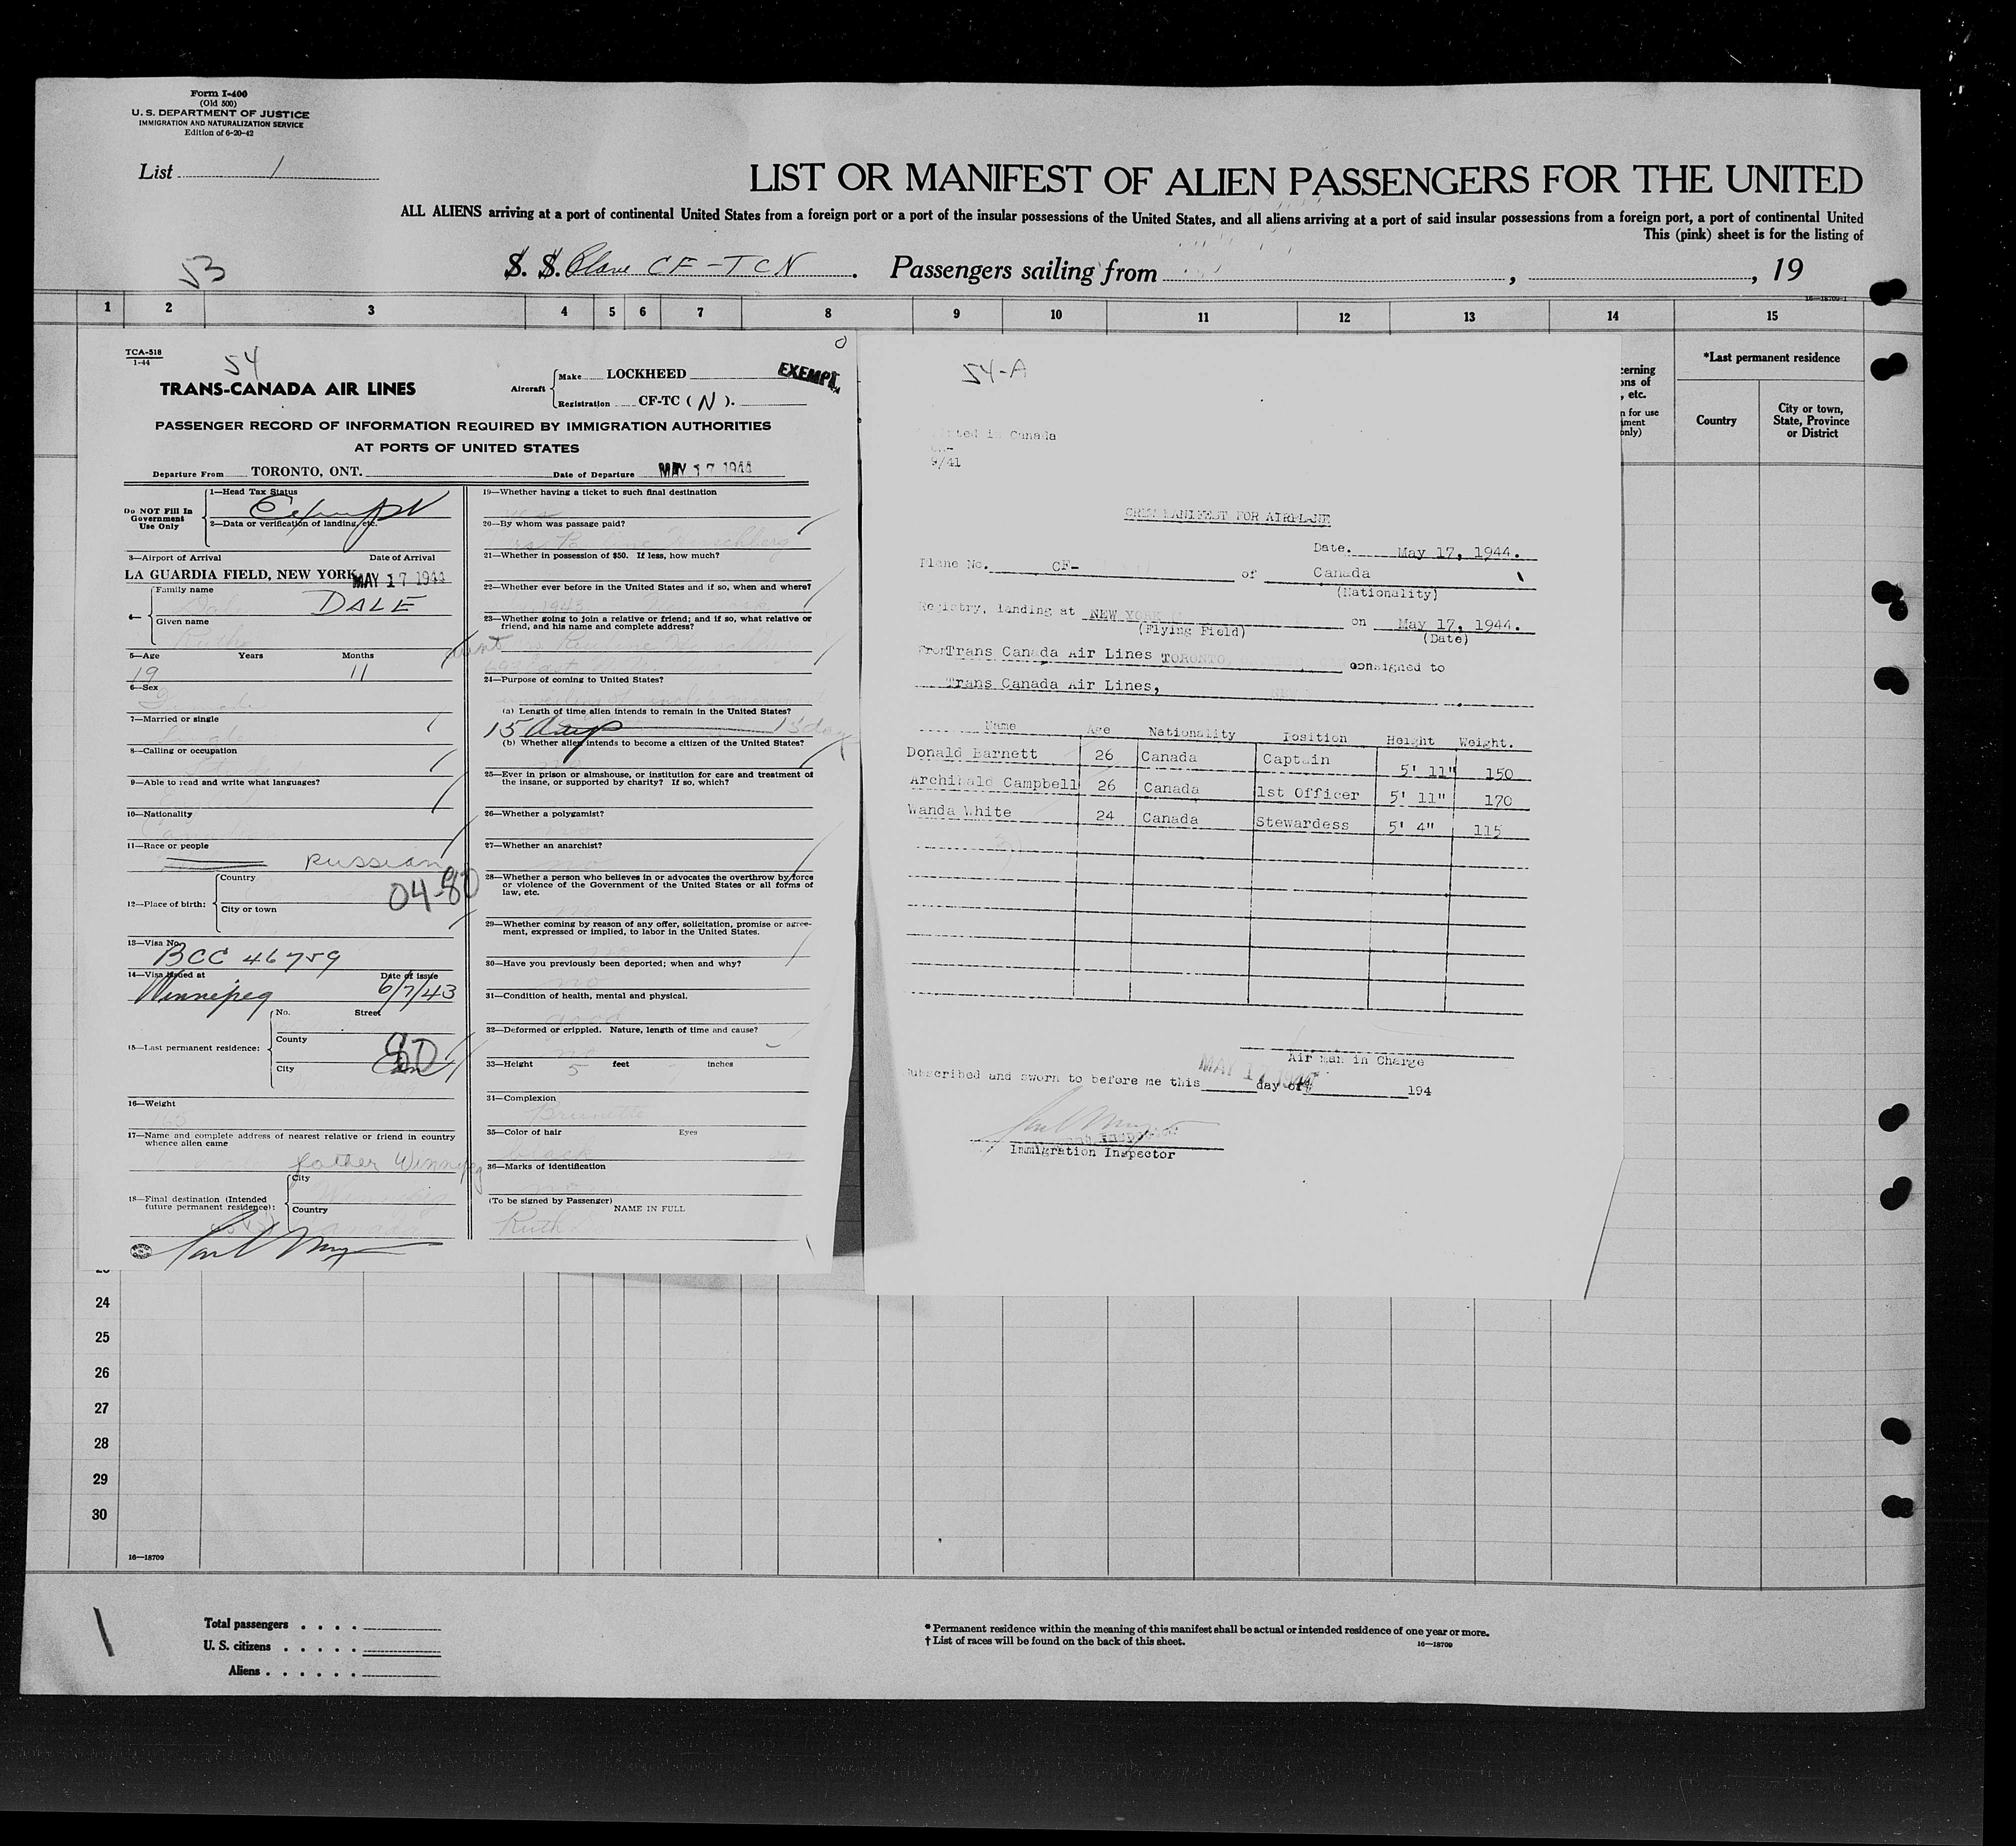 Form I-400
(Old 500)
U. S. DEPARTMENT OF JUSTICE
IMMIGRATION AND NATURALIZATION SERVICE
Edition of 6-20-42
List 1
LIST OR MANIFEST OF ALIEN PASSENGERS FOR THE UNITED
ALL ALIENS arriving at a port of continental United States from a foreign port or a port of the insular possessions of the United States, and all aliens arriving at a port of said insular possessions from a foreign port, a port of continental United
This (pink) sheet is for the listing of
53
S. S. Plane CF-TCN. Passengers sailing from , , 19
16—18709-1
1 2 3 4 5 6 7 8 9 10 11 12 13 14 15
TCA-518
1-44
54
TRANS-CANADA AIR LINES
Aircraft
Make LOCKHEED
Registration CF-TC (N).
EXEMPT
PASSENGER RECORD OF INFORMATION REQUIRED BY IMMIGRATION AUTHORITIES
AT PORTS OF UNITED STATES
Departure From TORONTO, ONT. Date of Departure MAY 17 1944
Do NOT Fill In
Government
Use Only
1—Head Tax Status
Exempt
2—Data or verification of landing, etc.
3—Airport of Arrival Date of Arrival
LA GUARDIA FIELD, NEW YORK MAY 17 1944
4— Family name
DALE
Given name
Ruth
5—Age Years Months
19 11
6—Sex
Female
7—Married or single
Single
8—Calling or occupation
9—Able to read and write what languages?
10—Nationality
11—Race or people
Russian
12—Place of birth:
Country
04-80
City or town
13—Visa No.
BCC 46759
14—Visa issued at Date of issue
Winnipeg 6/7/43
15—Last permanent residence:
No. Street
County
City
16—Weight
17—Name and complete address of nearest relative or friend in country
whence alien came
father Winnipeg
18—Final destination (Intended
future permanent residence):
City
Winnipeg
Country
Canada
19—Whether having a ticket to such final destination
yes
20—By whom was passage paid?
21—Whether in possession of $50. If less, how much?
22—Whether ever before in the United States and if so, when and where?
1943
23—Whether going to join a relative or friend; and if so, what relative or
friend, and his name and complete address?
24—Purpose of coming to United States?
(a) Length of time alien intends to remain in the United States?
15 days
(b) Whether alien intends to become a citizen of the United States?
25—Ever in prison or almshouse, or institution for care and treatment of
the insane, or supported by charity? If so, which?
26—Whether a polygamist?
no
27—Whether an anarchist?
no
28—Whether a person who believes in or advocates the overthrow by force
or violence of the Government of the United States or all forms of
law, etc.
29—Whether coming by reason of any offer, solicitation, promise or agree-
ment, expressed or implied, to labor in the United States.
30—Have you previously been deported; when and why?
no
31—Condition of health, mental and physical.
good
32—Deformed or crippled. Nature, length of time and cause?
no
33—Height feet inches
5
34—Complexion
Brunette
35—Color of hair Eyes
black
36—Marks of identification
(To be signed by Passenger)
NAME IN FULL
Ruth
54-A
in Canada
9/41
CREW MANIFEST FOR AIRPLANE
Date. May 17, 1944.
Plane No. CF- of Canada
(Nationality)
Registry, landing at NEW YORK on May 17, 1944.
(Flying Field) (Date)
From Trans Canada Air Lines TORONTO, consigned to
Trans Canada Air Lines,
Name Age Nationality Position Height Weight.
Donald Barnett 26 Canada Captain 5' 11" 150
Archibald Campbell 26 Canada 1st Officer 5' 11" 170
Wanda White 24 Canada Stewardess 5' 4" 115
Air man in Charge
Subscribed and sworn to before me this day of 194
MAY 17 1944
Immigration Inspector
*Last permanent residence
Country
City or town,
State, Province
or District
24
25
26
27
28
29
30
16—18709
Total passengers
U. S. citizens
Aliens
* Permanent residence within the meaning of this manifest shall be actual or intended residence of one year or more.
† List of races will be found on the back of this sheet.
16—18709